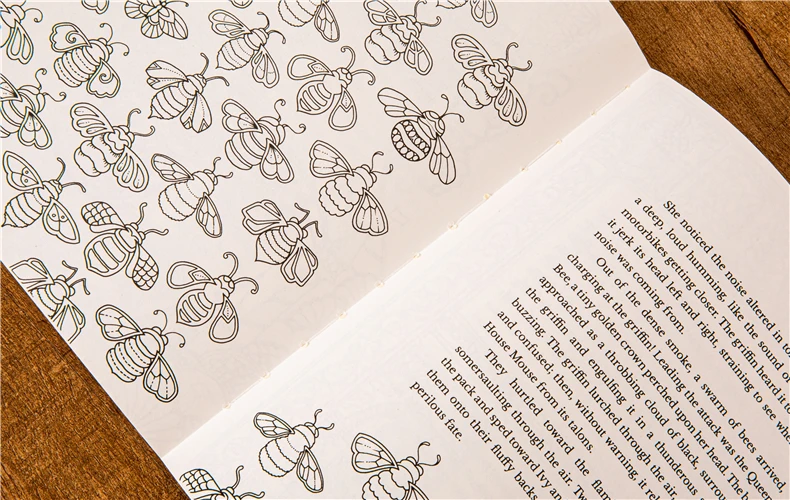 She noticed the noise altered in
a deep, loud humming, like the sound
motorbikes getting closer. The griffin heard it
it jerk its head left and right, straining to see
noise was coming from.
Out of the dense smoke, a swarm of bees arrived,
charging at the griffin! Leading the attack was the Queen
Bee, a tiny golden crown perched upon her head.
approached as a throbbing cloud of black,
the griffin and engulfing it in a thunderous
buzzing. The griffin lurched through the air
and confused; then, without warning, it
House Mouse from its talons.
They hurtled toward the
somersaulting through the air.
the pack and sped toward Ivy
them onto their fluffy
perilous fate.